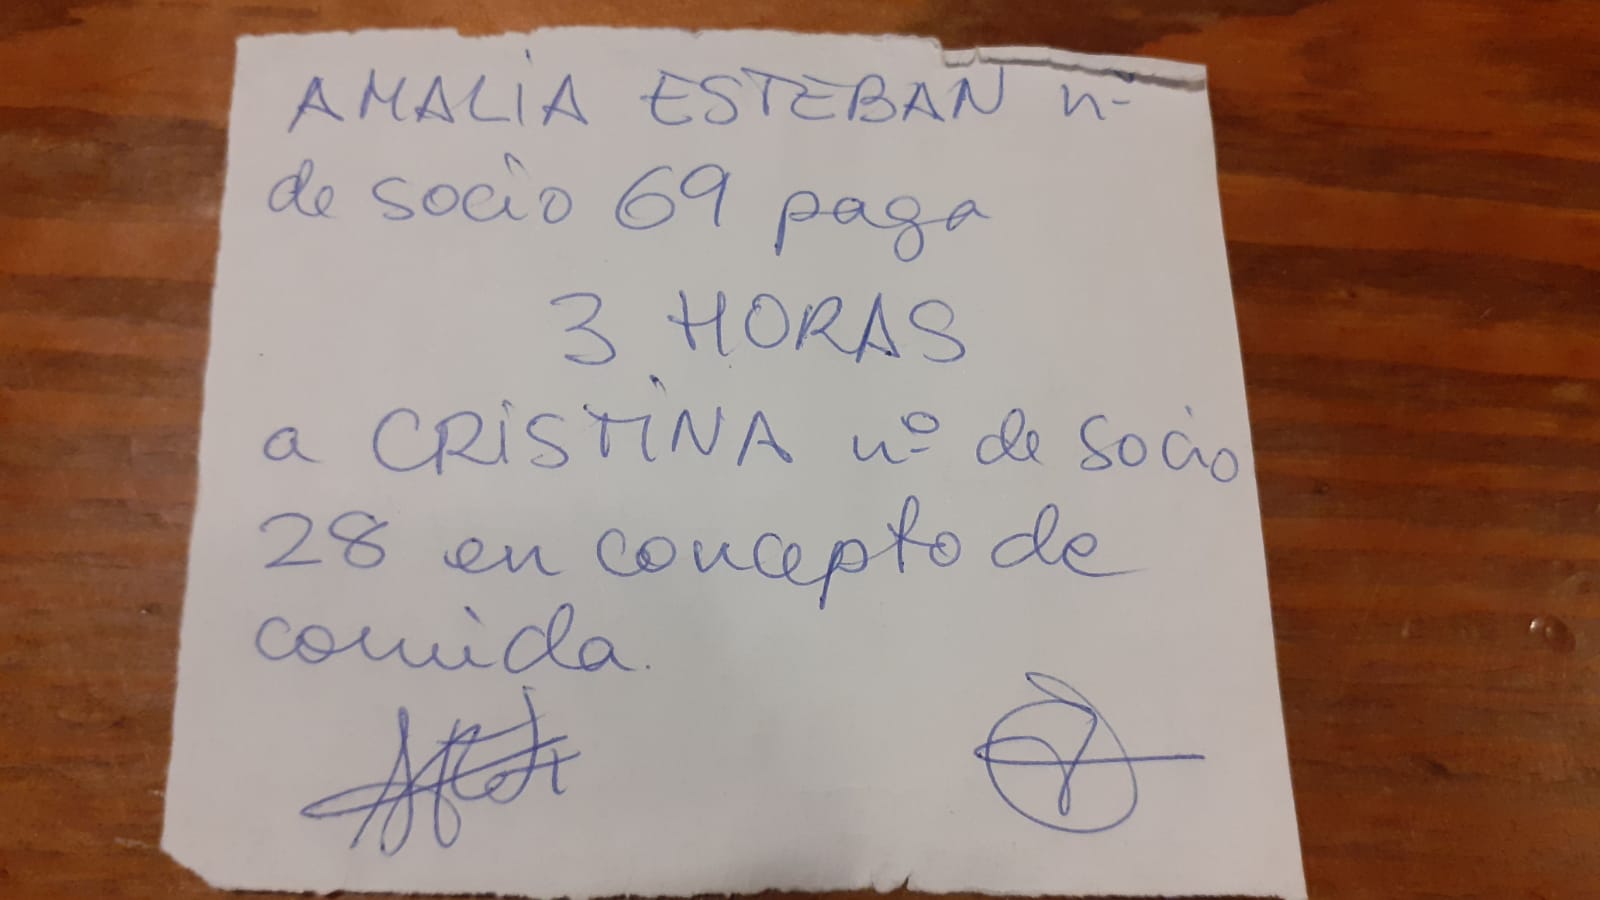 AMALIA ESTEBAN nº
de socio 69 paga
3 HORAS
a CRISTINA nº de socio
28 en concepto de
comida.